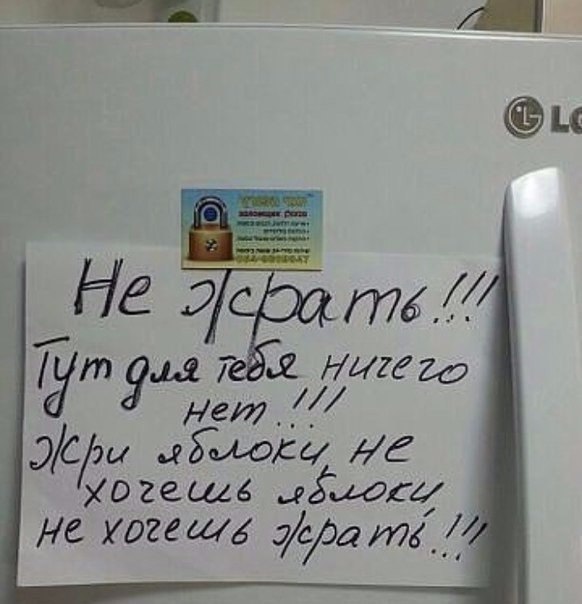 LG
взломщик
Не жрать!!!
Тут для тебя ничего
нет!!!
Жри яблоки, не
хочешь яблоки,
не хочешь жрать!!!